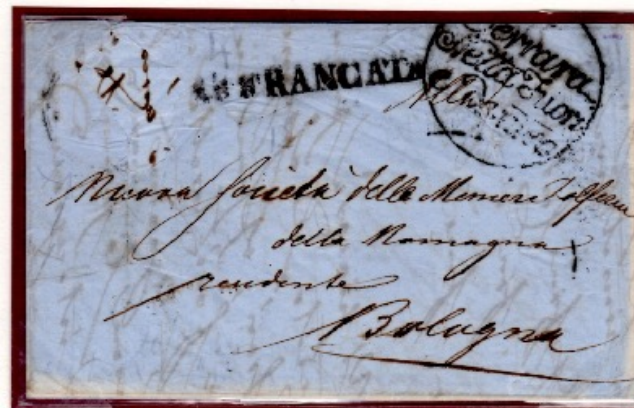 AFFRANCATA
Ferrara
Alla
Nuova Società delle Miniere Solfuree
della Romagna
residente
Bologna